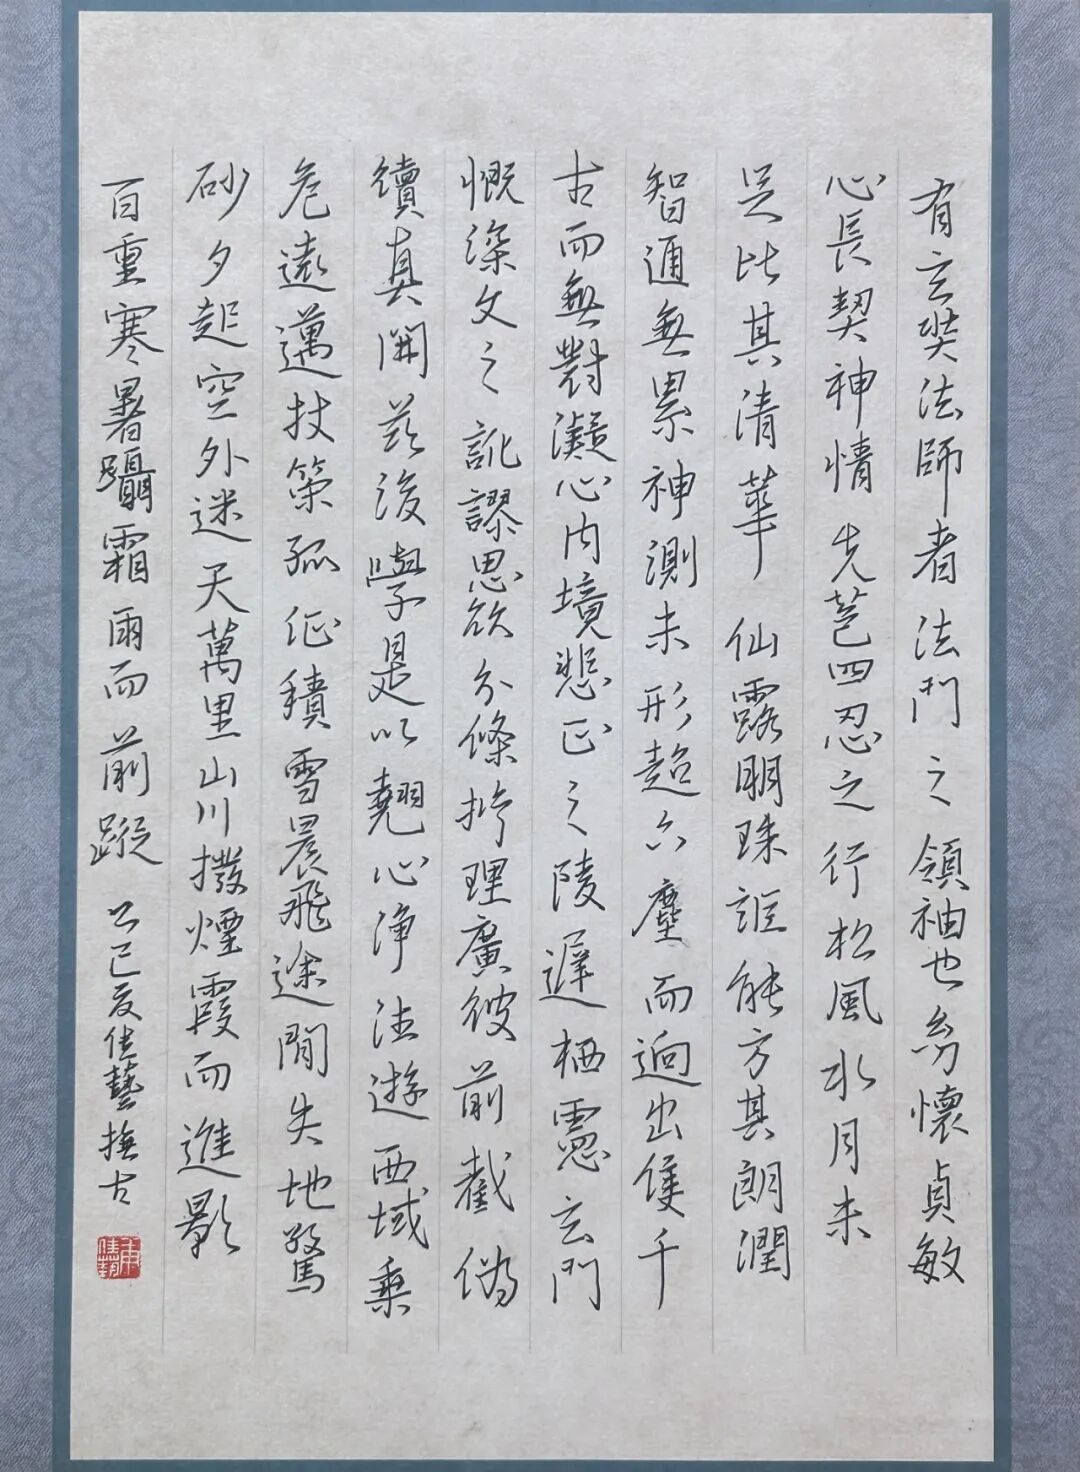 有玄奘法師者法門之領袖也幼懷貞敏
心長契神情先苞四忍之行松風水月未
足比其清華仙露明珠詎能方其朗潤
智通無累神測未形超六塵而迥出隻千
古而無對凝心內境悲正之陵遲栖慮玄門
慨深文之訛謬思欲分條析理廣彼前截偽
續真開茲後學是以翹心淨法遊西域乘
危遠邁杖策孤征積雪晨飛途間失地驚
砂夕起空外迷天萬里山川撥煙霞而進影
百重寒暑躡霜雨而前蹤 乙巳夏佳藝撫古